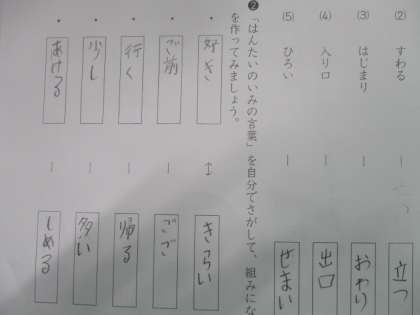 (2) すわる ― 立つ
(3) はじまり ― おわり
(4) 入り口 ― 出口
(5) ひろい ― せまい
❷「はんたいのいみの言葉」を自分でさがして、組みにな
を作ってみましょう。
・ 好き ↔ きらい
・ ご前 ― ごご
・ 行く ― 帰る
・ 少し ― 多い
・ あける ― しめる